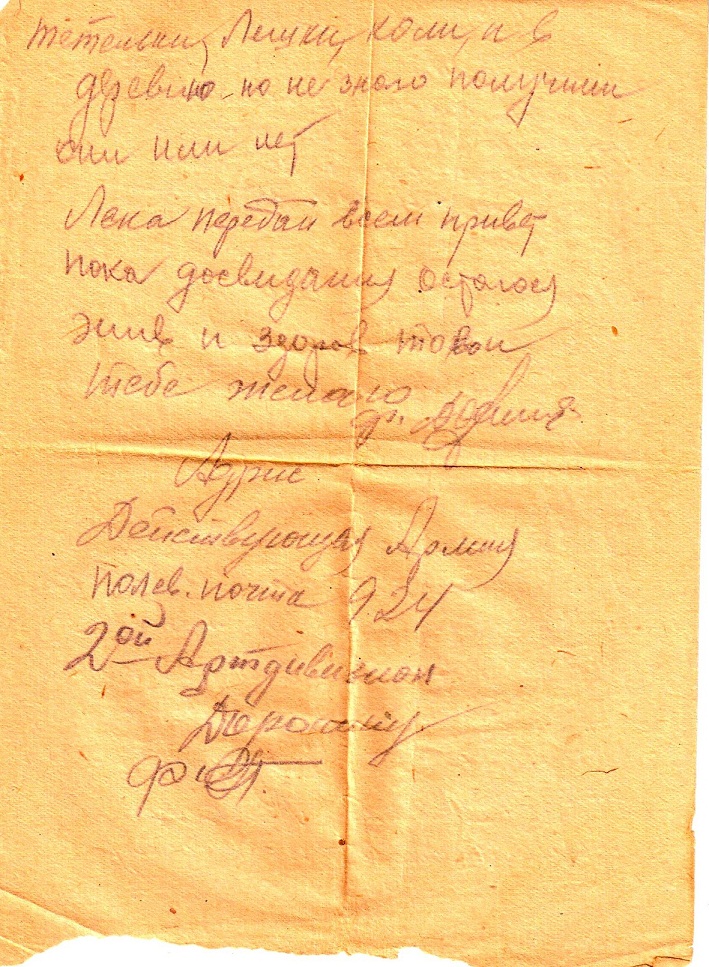 тётельки, Лешки, коли, и в
деревню но не знаю получили
они или нет
Лека передай всем привет
пока досвидания остаюся
жив и здоров товои
тебе желаю Ф.
Адрис
Действующая Армия
Полев. почта 924
2ой Артдивизион
Доронину
Ф.